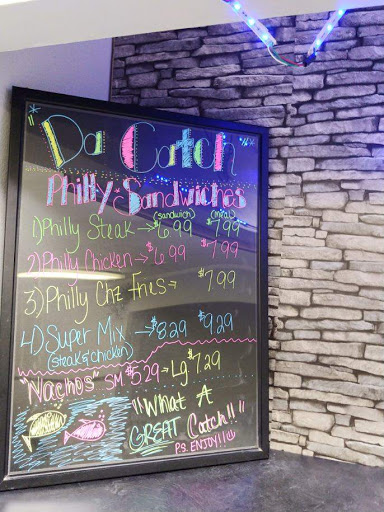 "Da Catch"
Philly Sandwiches
(sandwich) (meal)
1) Philly Steak → $6.99 $7.99
2) Philly Chicken → $6.99 $7.99
3) Philly Chz Fries → $7.99
4) Super Mix → $8.29 $9.29
(steak & chicken)
"Nachos" SM $5.29 → Lg $7.29
"What A
GREAT Catch!!"
P.S. ENJOY!!